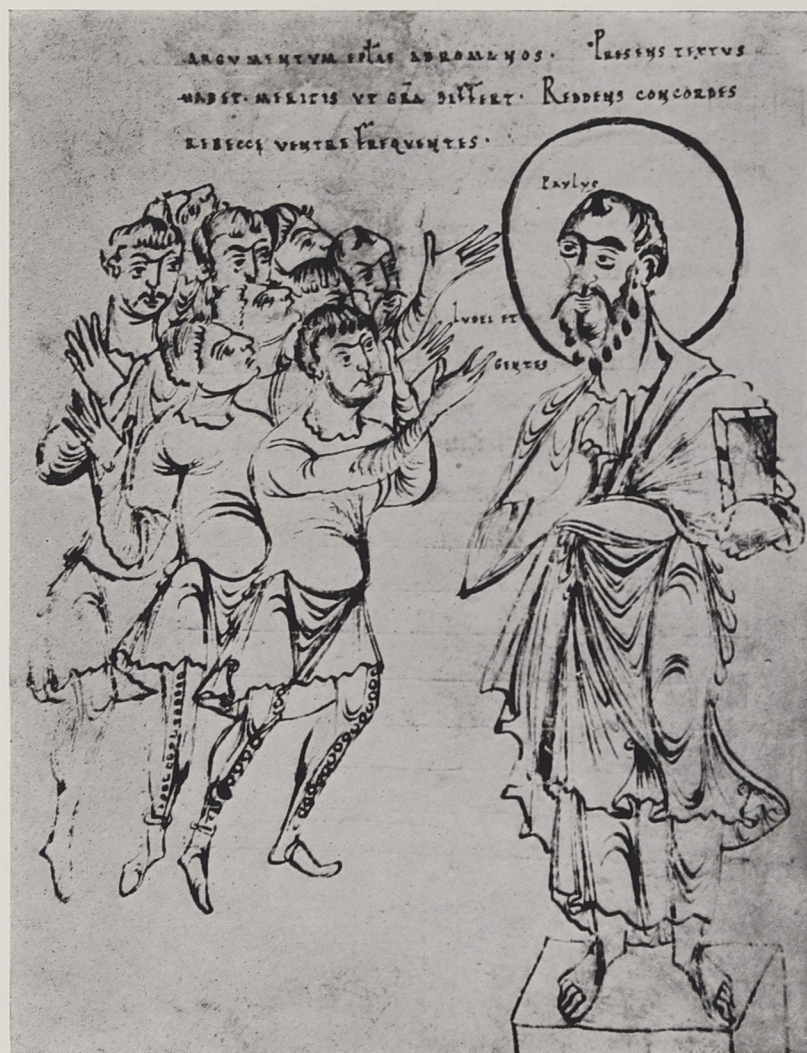 ARGVMENTVM EPLAE AD ROMANOS. PRESENS TEXTVS
HABET. MERITIS VT GRA DIFFERT. REDDENS CONCORDES
REBECCĘ VENTRE FREQVENTES.
PAVLVS
IVDEI ET
GENTES